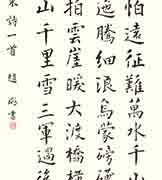 怕遠征難萬水千
迤騰細浪烏蒙磅礴
拍雲崖暖大渡橋橫
山千里雪三軍過後
東詩一首 趙 書